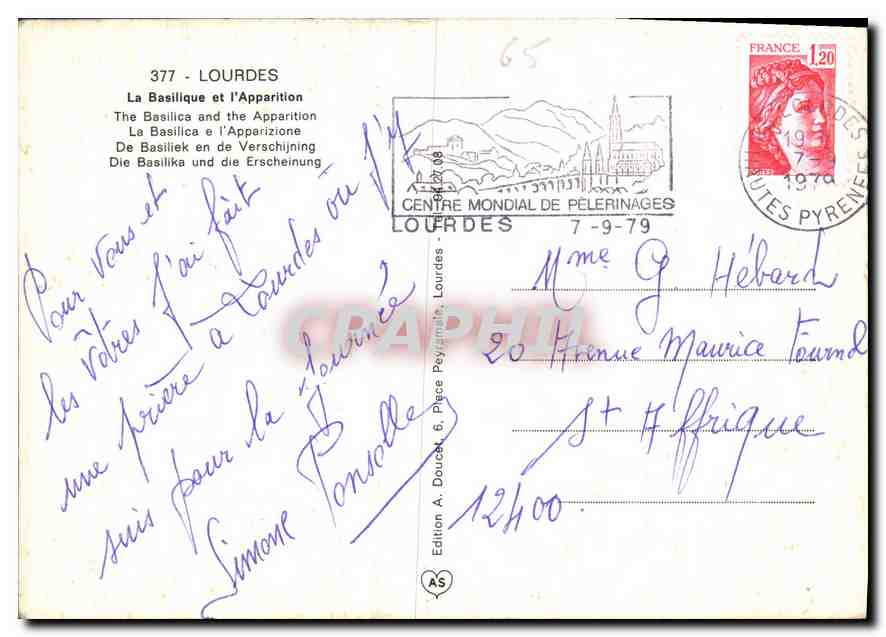 65
377 - LOURDES
La Basilique et l'Apparition
The Basilica and the Apparition
La Basilica e l'Apparizione
De Basiliek en de Verschijning
Die Basilika und die Erscheinung
FRANCE 1,20
CENTRE MONDIAL DE PÈLERINAGES
LOURDES 7-9-79
LOURDES
19
7-9
1979
HAUTES PYRENEES
Pour vous et
les vôtres j'ai fait
une prière a Lourdes où j'y
suis pour la journée
Simone Ponsolle
Edition A. Doucet, 6, Place Peyramale, Lourdes - Tél. 94.27.08
AS
Mme G. Hébard
20 Avenue Maurice Fournol
St Affrique
12400.
CPAPHIL